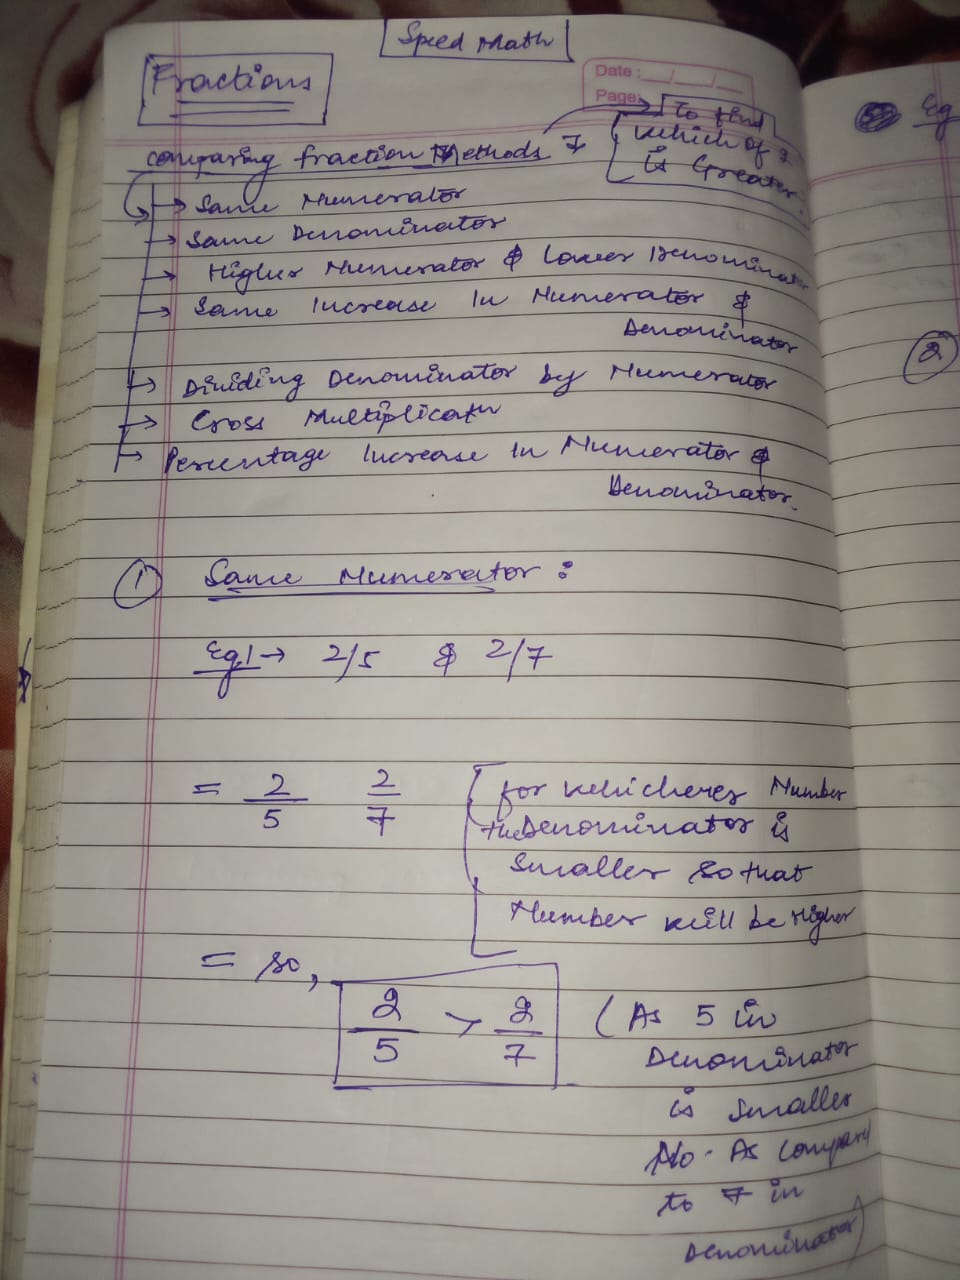 Speed Math
Fractions
Date: __/__/__
Page:
To find
which of 7
is Greater.
comparing fraction Methods 7
→ Same Numerator
→ Same Denominator
→ Higher Numerator & Lower Denominator
→ Same Increase In Numerator &
Denominator
→ Dividing Denominator by Numerator
→ Cross Multiplicatn
→ Percentage Increase In Numerator &
Denominator.
① Same Numerator:
Eg1 → 2/5 & 2/7
= 2/5 2/7
for whichever Number
the Denominator is
Smaller so that
Number will be Higher
= so, 2/5 > 2/7
(As 5 in
Denominator
is smaller
No. As compared
to 7 in
Denominator)
Eg
②